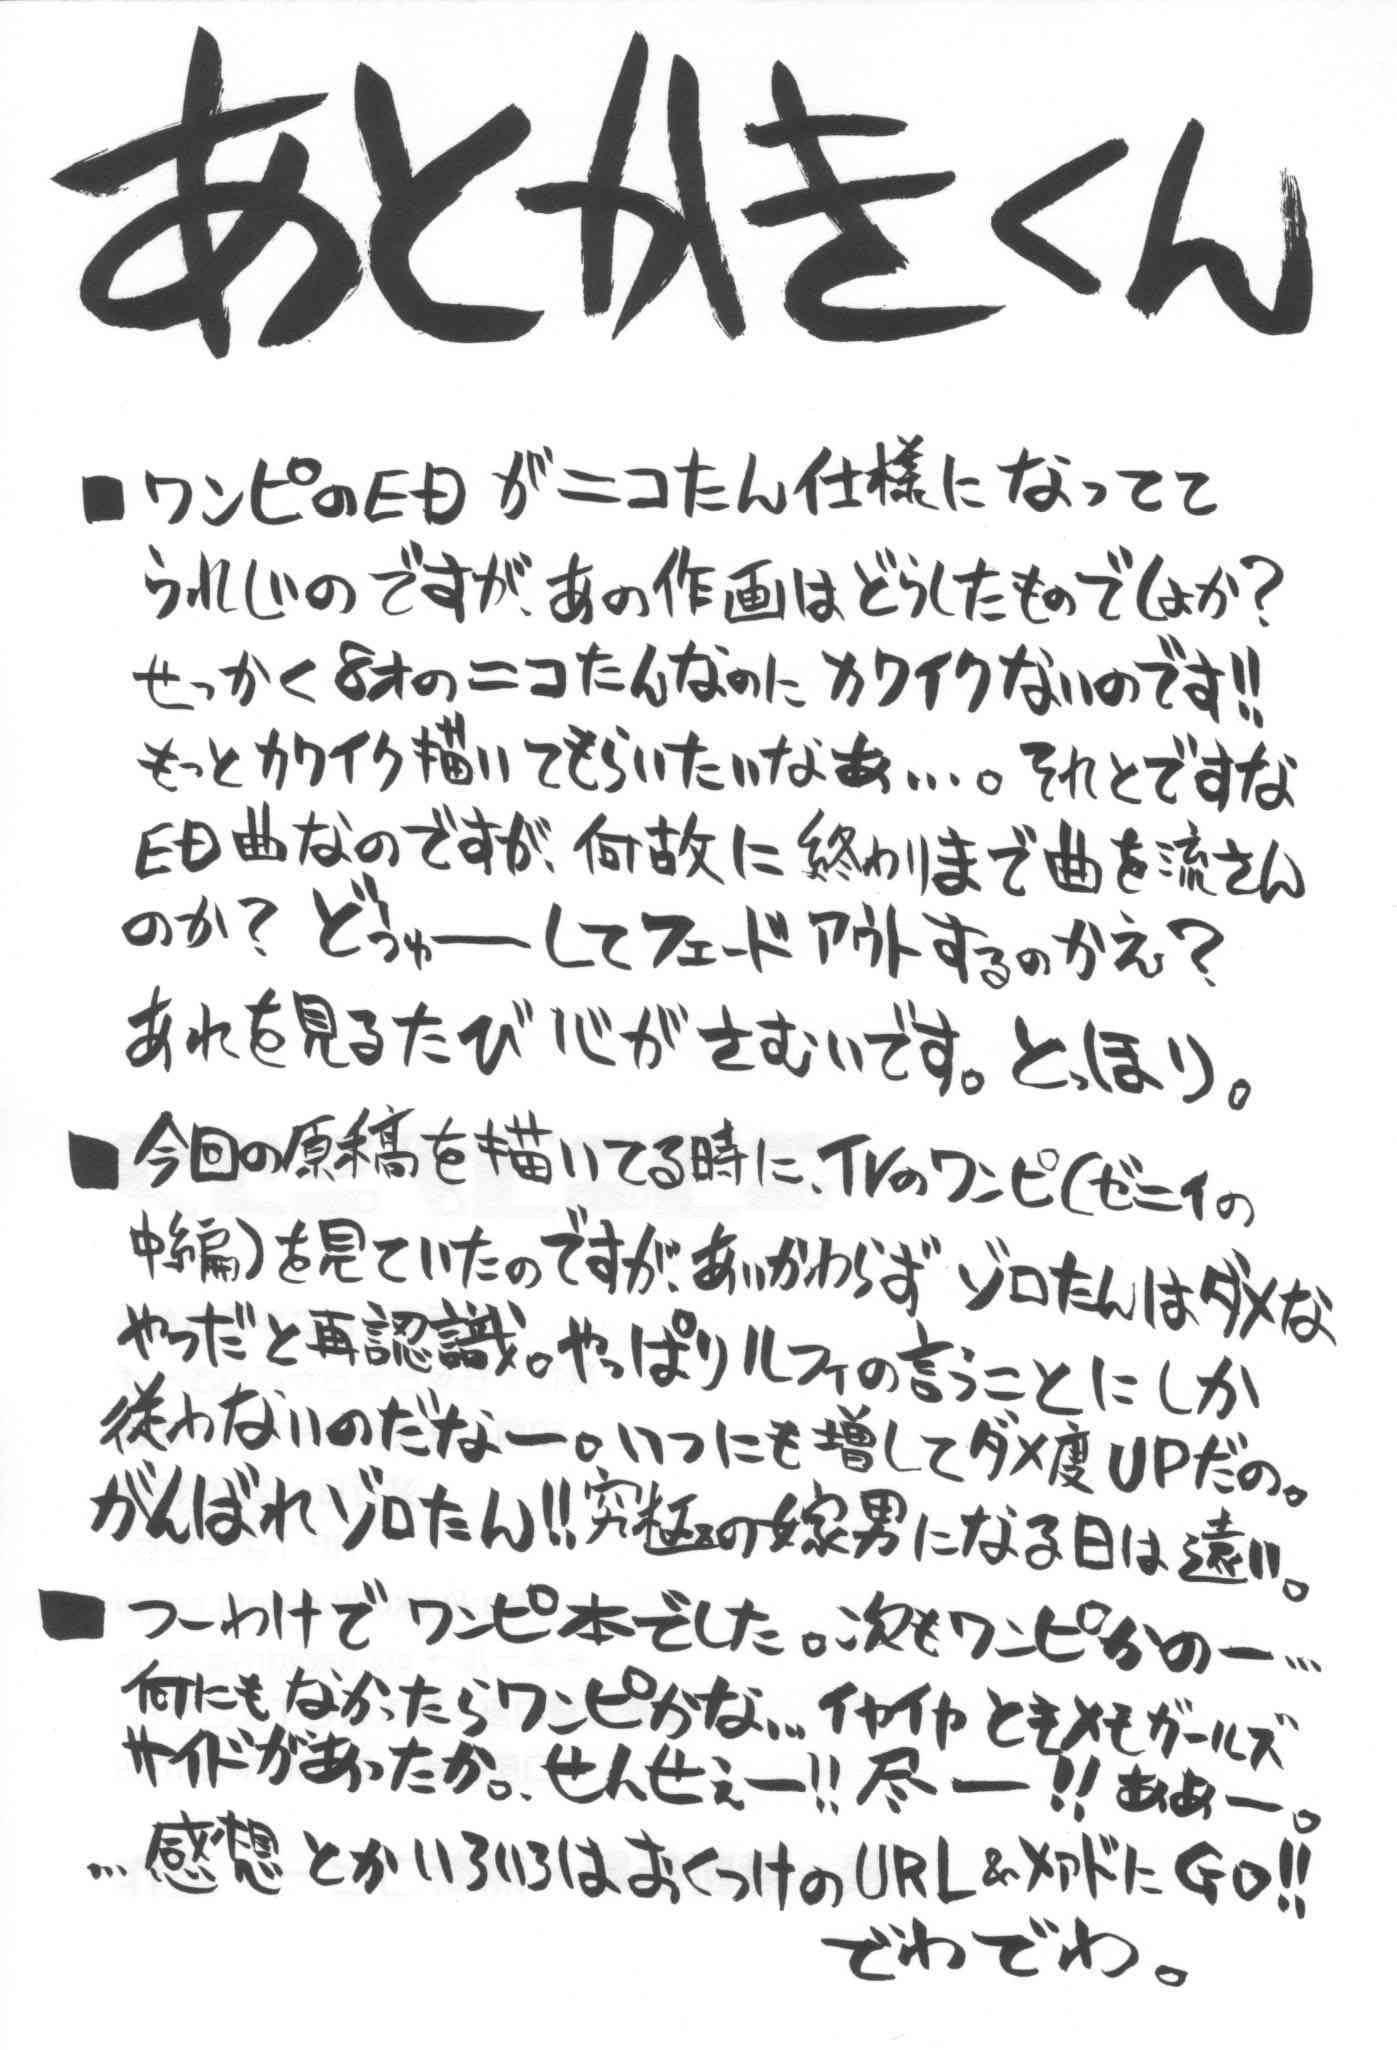 あとかきくん
■ワンピのEDがニコたん仕様になってて
うれしいのですが、あの作画はどうしたものでしょか?
せっかく8才のニコたんなのにカワイクないのです!!
もっとカワイク描いてもらいたいなぁ…。それとですな
ED曲なのですが、何故に終わりまで曲を流さん
のか? どぅゅーしてフェードアウトするのかえ?
あれを見るたび心がさむいです。とっほり。
■今回の原稿を描いてる時に、TVのワンピ(ゼニィの
中編)を見ていたのですが、あいかわらずゾロたんはダメな
やつだと再認識。やっぱりルフィの言うことにしか
従わないのだなー。いつにも増してダメ度UPだの。
がんばれゾロたん!!究極の嫁男になる日は遠い。
■つーわけでワンピ本でした。次もワンピかのー…
何にもなかったらワンピかな…イヤイヤときメモガールズ
サイドがあったか。せんせぇー!!尽ー!!ああー。
…感想とかいろいろはおくつけのURL&メアドにGO!!
でわでわ。